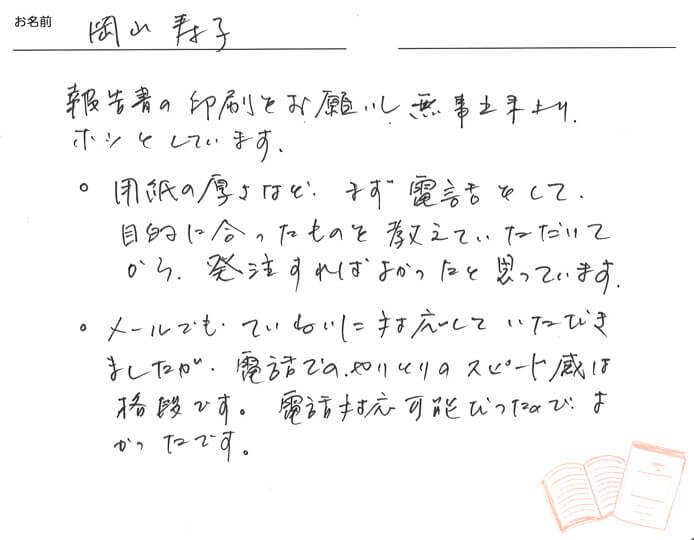 お名前 岡山 寿子
報告書の印刷をお願いし無事出来上り、
ホッとしています。
○ 用紙の厚さなど、まず電話をして、
目的に合ったものを教えていただいて
から、発注すればよかったと思っています。
○ メールでも、ていねいに対応していただき
ましたが、電話での、やりとりのスピード感は
格段です。電話対応可能だったので、よ
かったです。